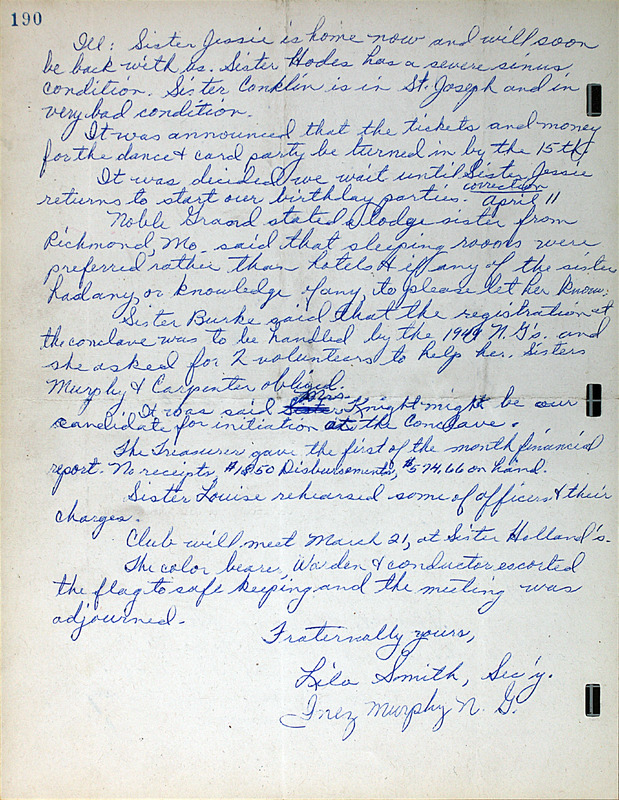 190
Ill: Sister Jessie is home now and will soon
be back with us. Sister Hodes has a severe sinus
condition. Sister Conklin is in St. Joseph and in
very bad condition.
It was announced that the tickets and money
for the dance & card party be turned in by the 15th.
It was decided we wait until Sister Jessie
returns to start our birthday parties. correction April 11
Noble Grand stated a lodge sister from
Richmond, Mo. said that sleeping rooms were
preferred rather than hotels & if any of the sisters
had any, or knowledge of any, to please let her know.
Sister Burke said that the registration at
the conclave was to be handled by the 1949 N.G's. and
she asked for 2 volunteers to help her. Sisters
Murphy & Carpenter obliged.
It was said Mrs. Knight might be our
candidate for initiation at the Conclave.
The Treasurer gave the first of the month financial
report. No receipts, $18.50 Disbursements, $574.66 on hand.
Sister Louise rehearsed some of officers & their
charges.
Club will meet March 21, at Sister Holland's.
The color bearer, Warden & conductor escorted
the flag to safe keeping and the meeting was
adjourned.
Fraternally yours,
Lila Smith, Sec'y.
Inez Murphy N. G.